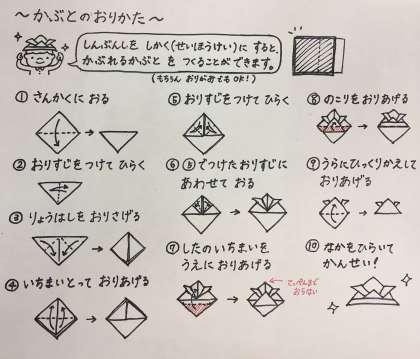 ～かぶとのおりかた～
しんぶんしを しかく(せいほうけい)に すると、
かぶれるかぶと を つくることができます。
(もちろん おりがみでもOK!)
① さんかくに おる
② おりすじをつけて ひらく
③ りょうはしを おりさげる
④ いちまいとって おりあげる
⑤ おりすじをつけて ひらく
⑥ ⑤でつけたおりすじに
あわせて おる
⑦ したのいちまいを
うえに おりあげる
てっぺんまで
おらない
⑧ のこりをおりあげる
⑨ うらにひっくりかえして
おりあげる
⑩ なかをひらいて
かんせい!